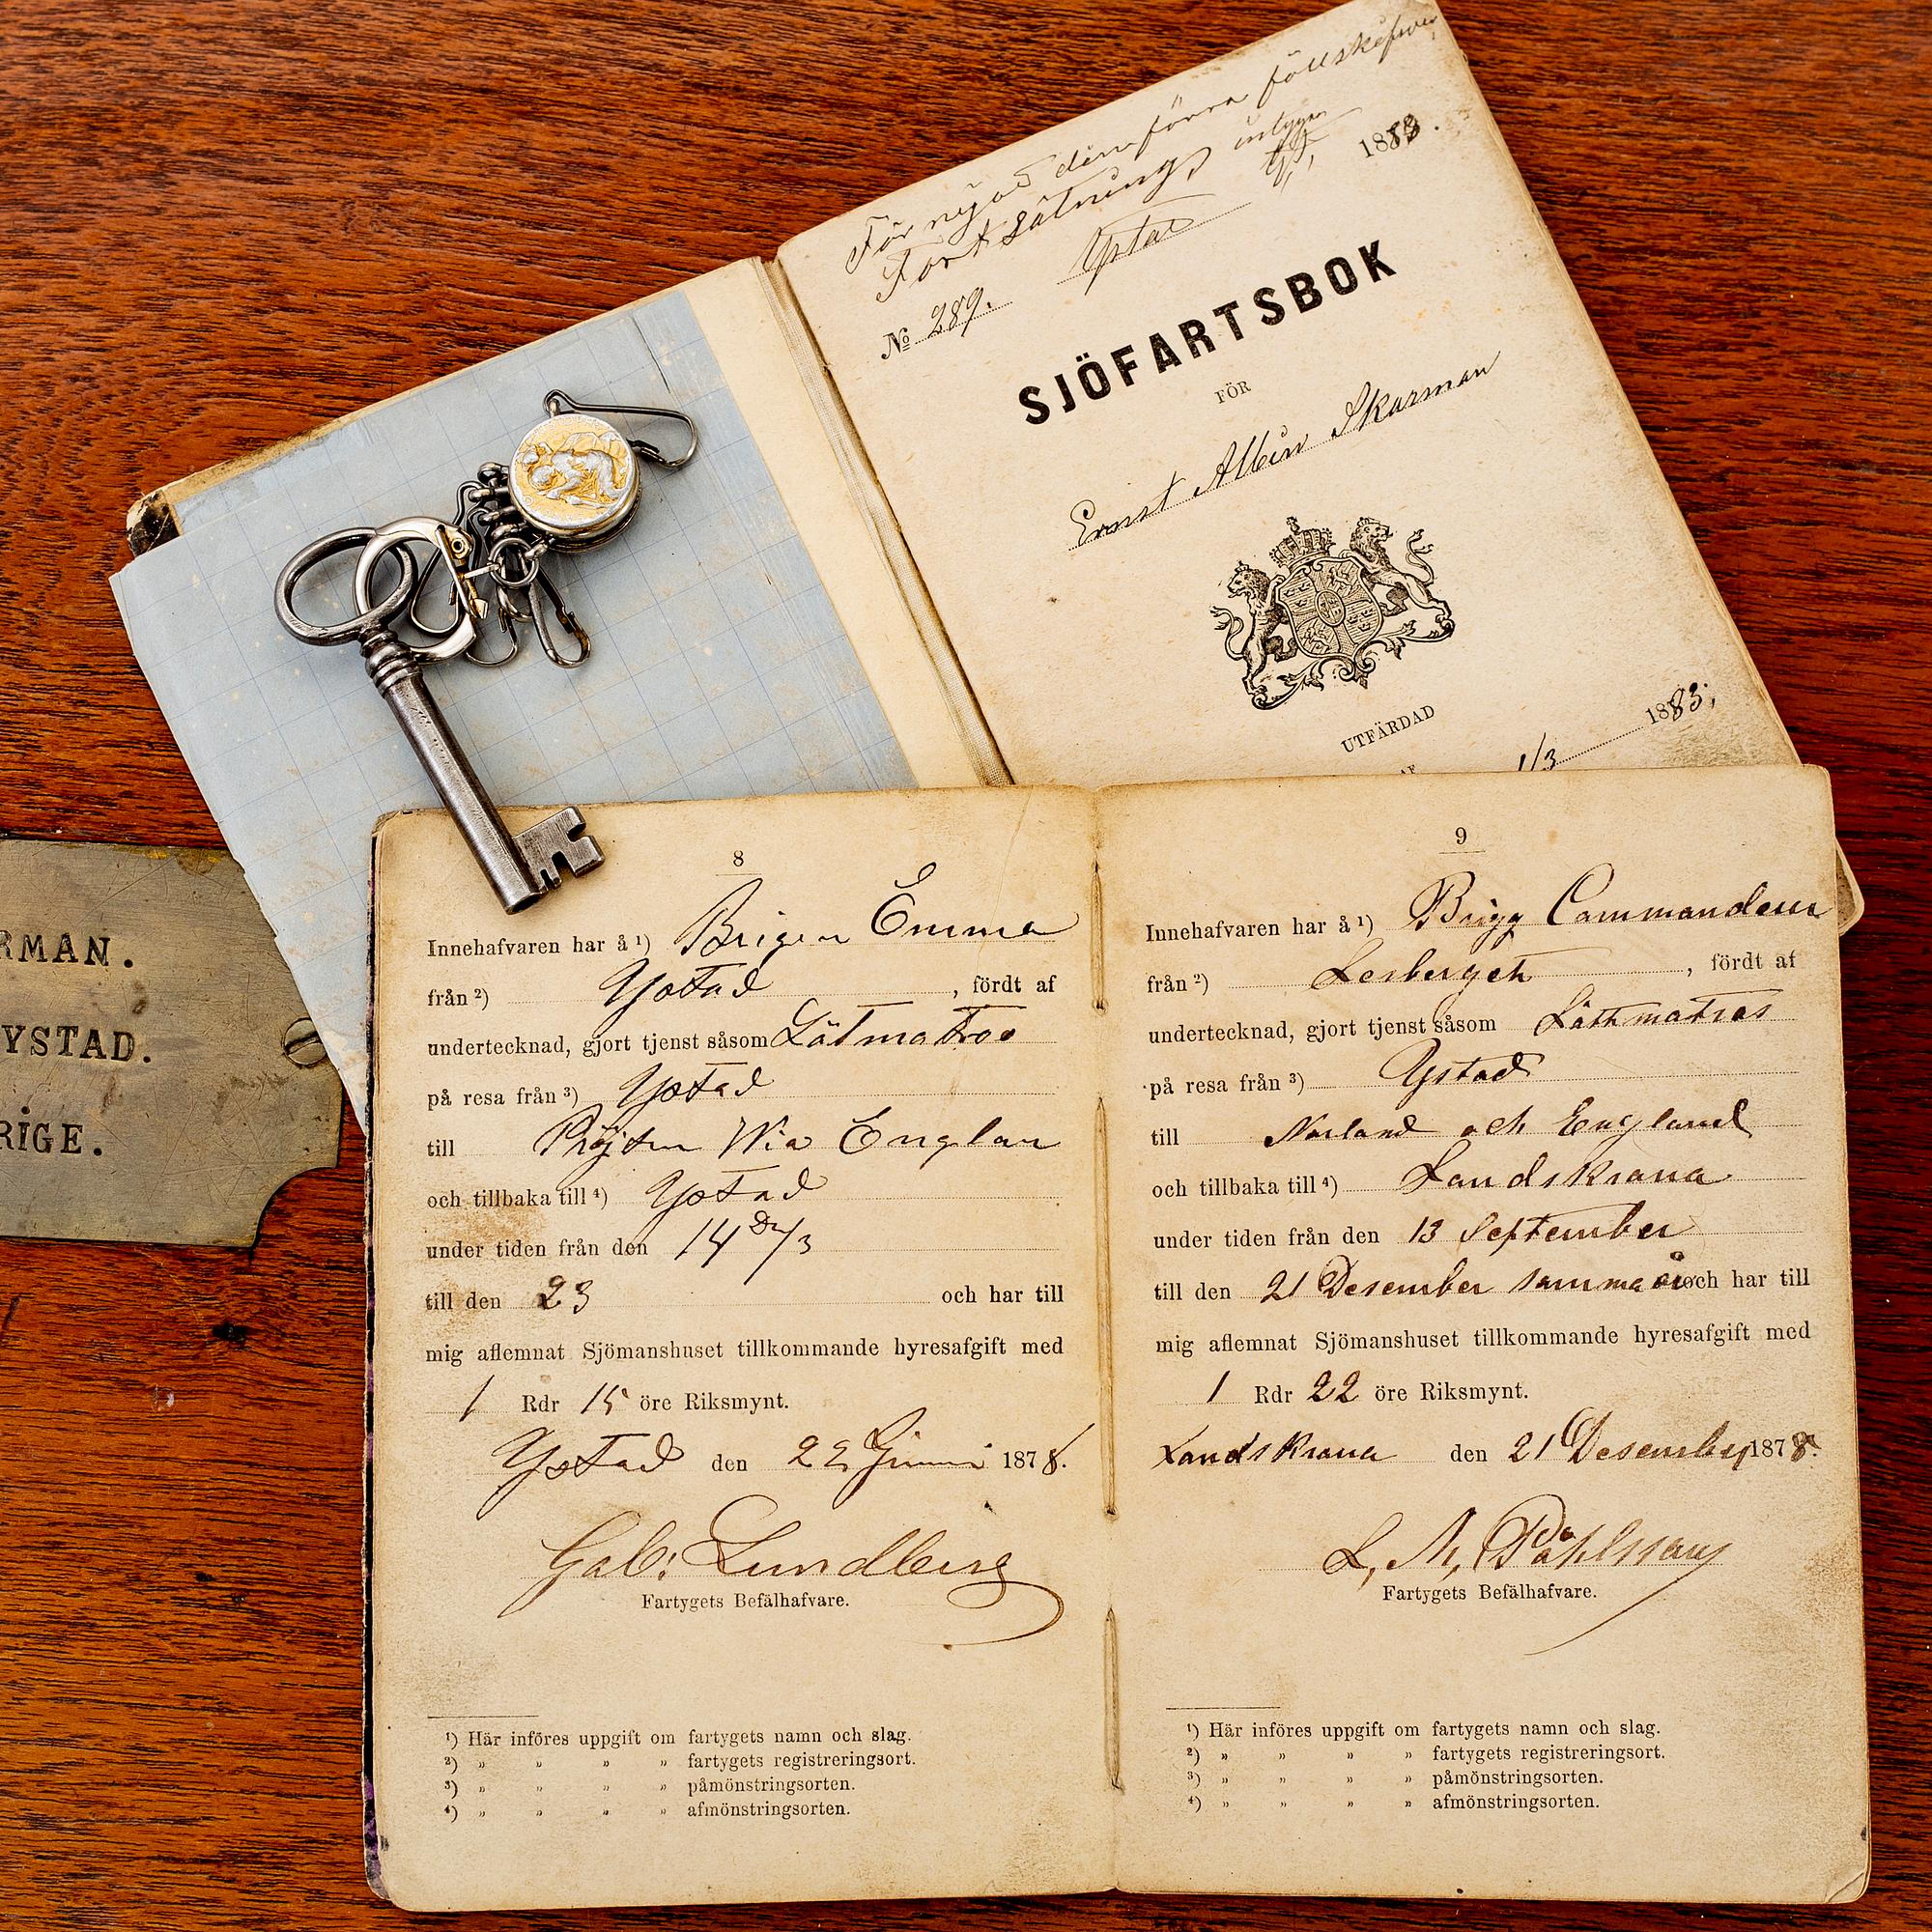 Fortsätning
1883.
Ystad
№ 289.
SJÖFARTSBOK
FÖR
Ernst Albin Skarman
UTFÄRDAD
AF
1/3 1883,
RMAN.
YSTAD.
RIGE.
8
Innehafvaren har å ¹) Brigen Emma
från ²) Ystad, fördt af
undertecknad, gjort tjenst såsom Lätmatros
på resa från ³) Ystad
till Wia Englan
och tillbaka till ⁴) Ystad
under tiden från den 14 /3
till den 23 och har till
mig aflemnat Sjömanshuset tillkommande hyresafgift med
1 Rdr 15 öre Riksmynt.
Ystad den 22 Juni 1878.
Gab: Lundberg
Fartygets Befälhafvare.
¹) Här införes uppgift om fartygets namn och slag.
²) » » » » fartygets registreringsort.
³) » » » » påmönstringsorten.
⁴) » » » » afmönstringsorten.
9
Innehafvaren har å ¹) Brigg Commandeur
från ²) Lerberget, fördt af
undertecknad, gjort tjenst såsom Läthmatros
på resa från ³) Ystad
till Norland och England
och tillbaka till ⁴) Landskrona
under tiden från den 13 September
till den 21 Desember samma år och har till
mig aflemnat Sjömanshuset tillkommande hyresafgift med
1 Rdr 22 öre Riksmynt.
Landskrona den 21 Desember 1878.
L. M. Påhlsson
Fartygets Befälhafvare.
¹) Här införes uppgift om fartygets namn och slag.
²) » » » » fartygets registreringsort.
³) » » » » påmönstringsorten.
⁴) » » » » afmönstringsorten.